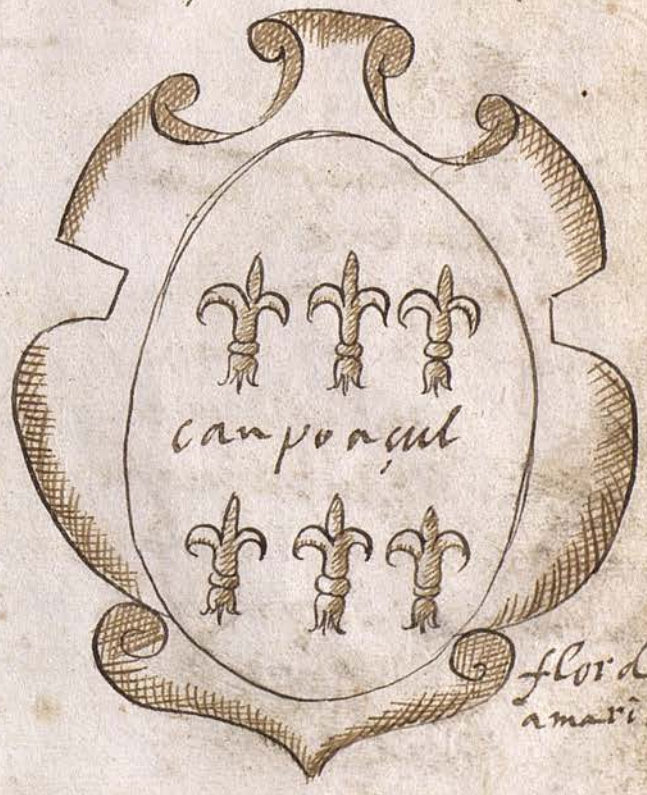 canpo açul
flor d
amari